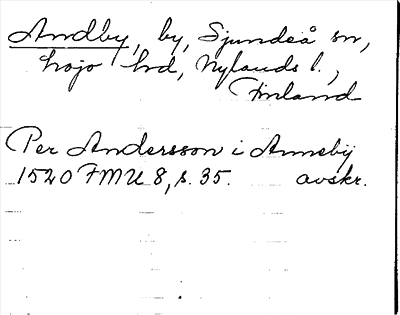 Andby, by, Sjundeå sn,
Lojo hd, Nylands l.,
Finland
Per Andersson i Anneby
1520 FMU 8, s. 35. avskr.